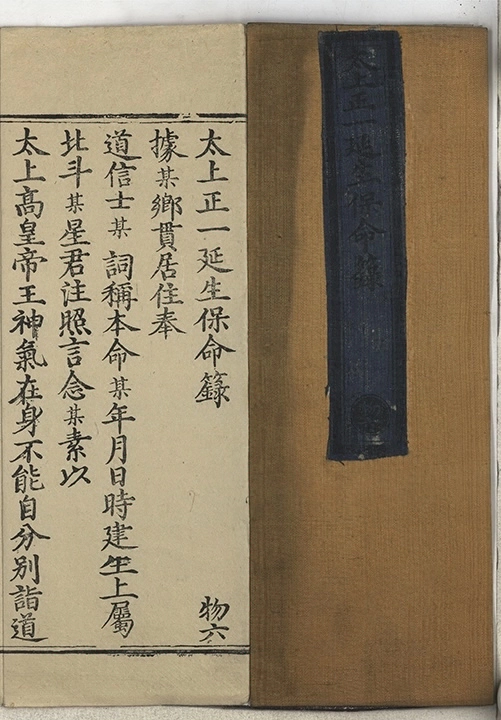 太上正一延生保命籙
太上正一延生保命籙 物六
據某鄉貫居住奉
道信士某 詞稱本命某年月日時建生上屬
北斗某星君注照言念某素以
太上高皇帝王神氣在身不能自分別詣道